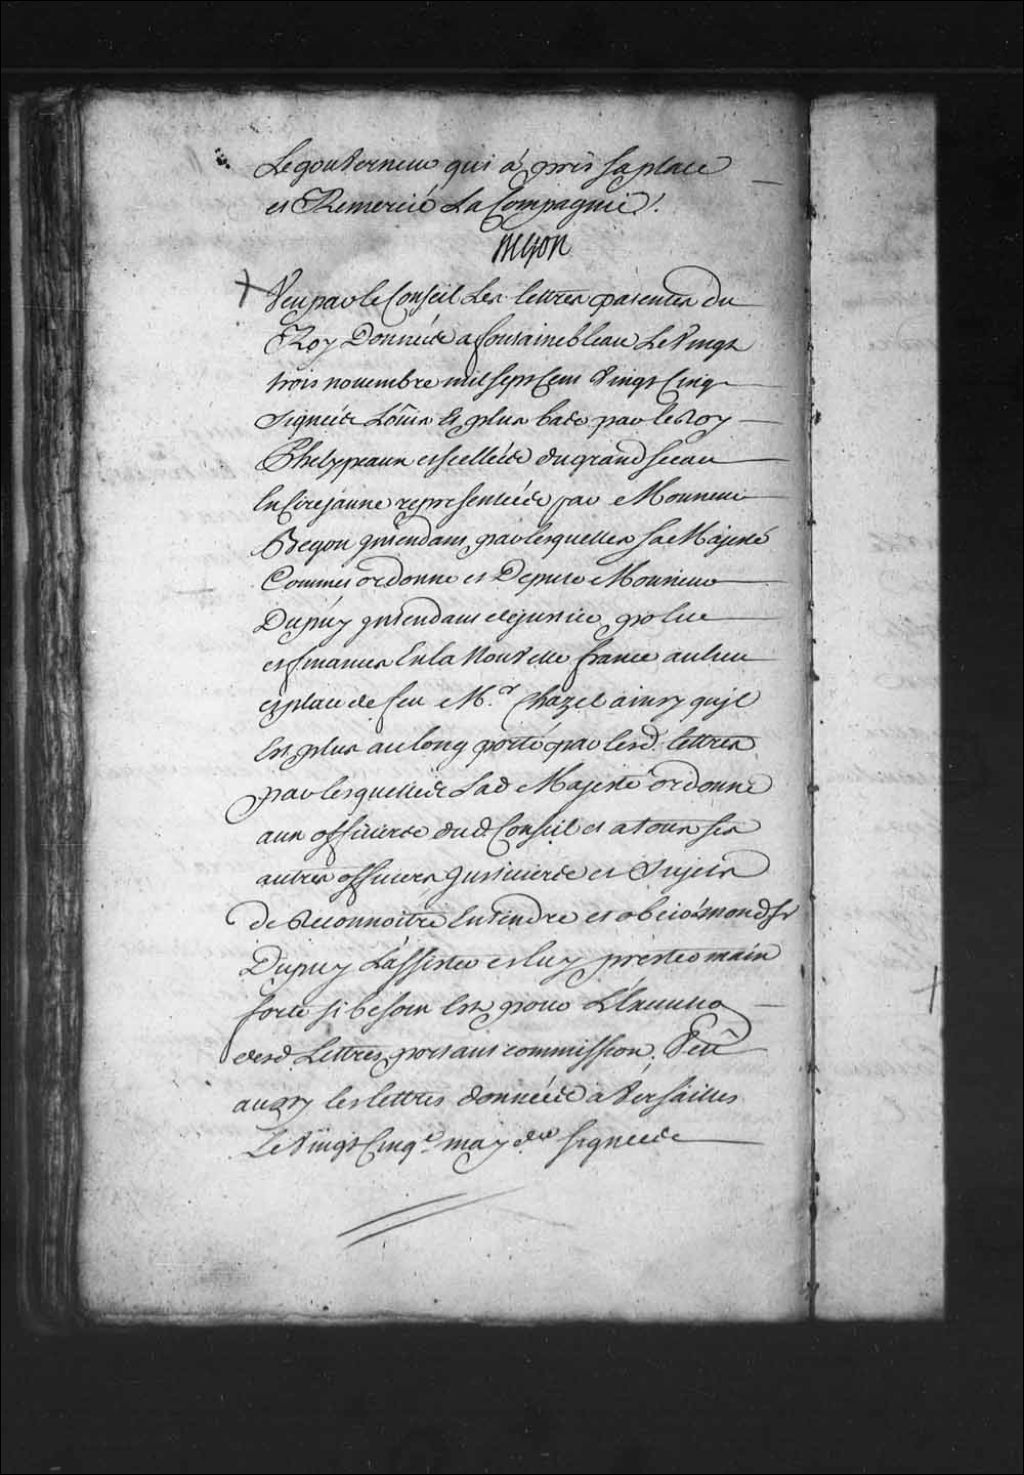 Le gouverneur qui à pris sa place
et Remercié La Compagnie /.
Begon
Veu par le Conseil Les lettres patentes du
Roy Données a fontainebleau Le Vingt
trois novembre mil sept Cent Vingt Cinq
signées Loüis Et plus bas par le Roy
Phelypeaux et scellées du grand sceau
En Cire jaune representées par Monsieur
Begon jntendant, par lesquelles sa Majesté
Commet ordonne et Depute Monsieur
Dupuy jntendant de justice, police
et finances En la Nouvelle france au lieu
et place de feu M.r Chazel ainsy qu'jl
Est plus au long porté par lesd. lettres
par lesquelles Lad Majesté ordonne
aux officiers dud. Conseil et a tous ses
autres officiers Justiciers et Sujets
de Reconnoitre Entendre et obeir mond. sr
Dupuy L'assister et luy prester main
forte si besoin Est, pour L'Execution
desd. Lettres, portant commission. Veu
aussy les lettres données à Versailles
Le Vingt Cinq.e may d.er signées